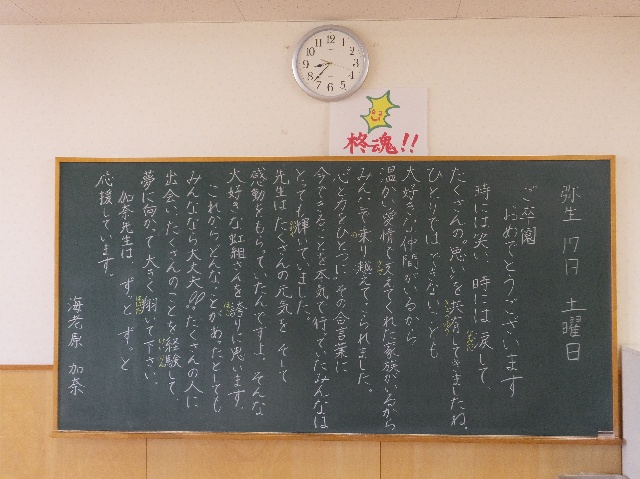 柊魂!!
弥生 17日 土曜日
ご卒園
おめでとうございます
時には笑い、時には涙して
たくさんの思いを共有してきましたね。
ひとりではできないことも
大好きな仲間がいるから
温かい愛情で支えてくれた家族がいるから
みんなで乗り越えてこられました。
心と力をひとつに その合言葉に
今できることを本気で行っていたみんなは
とっても輝いていました。
先生は たくさんの元気を そして
感動をもらっていたんですよ。そんな
大好きな虹組さんを誇りに思います。
これから どんなことがあったとしても
みんななら大丈夫!! たくさんの人に
出会い たくさんのことを経験して、
夢に向かって大きく翔いて下さい。
加奈先生は ずっと ずっと
応援しています。
海老原 加奈